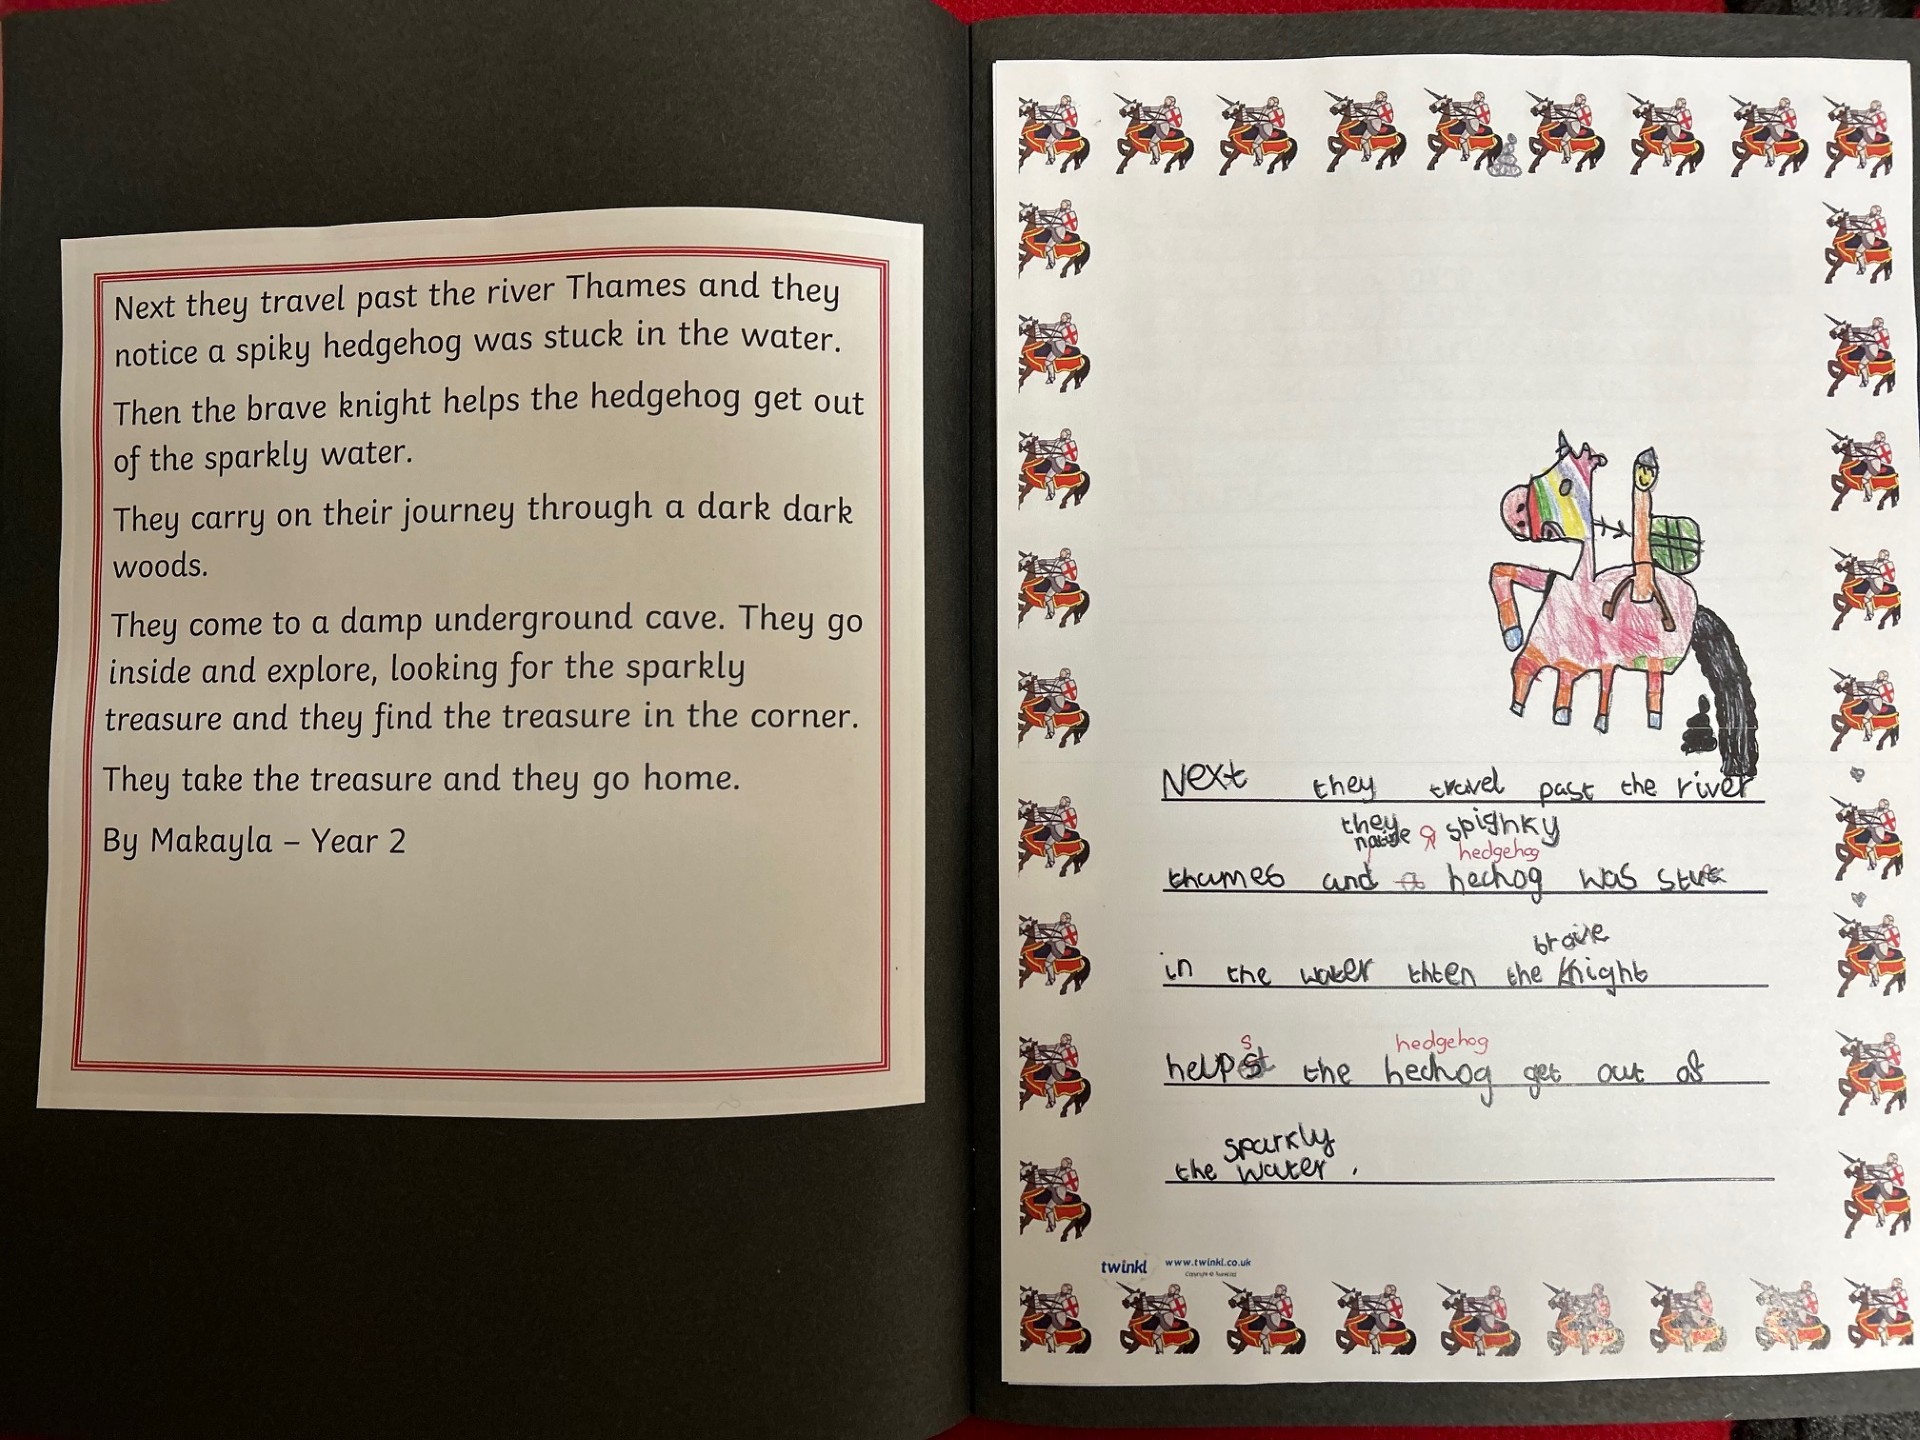 Next they travel past the river Thames and they
notice a spiky hedgehog was stuck in the water.
Then the brave knight helps the hedgehog get out
of the sparkly water.
They carry on their journey through a dark dark
woods.
They come to a damp underground cave. They go
inside and explore, looking for the sparkly
treasure and they find the treasure in the corner.
They take the treasure and they go home.
By Makayla – Year 2
Next they travel past the river
they spighky
notice a hedgehog
thames and a hechog was stuck
brave
in the water thten the knight
s hedgehog
helpst the hechog get out of
sparkly
the water.
twinkl www.twinkl.co.uk